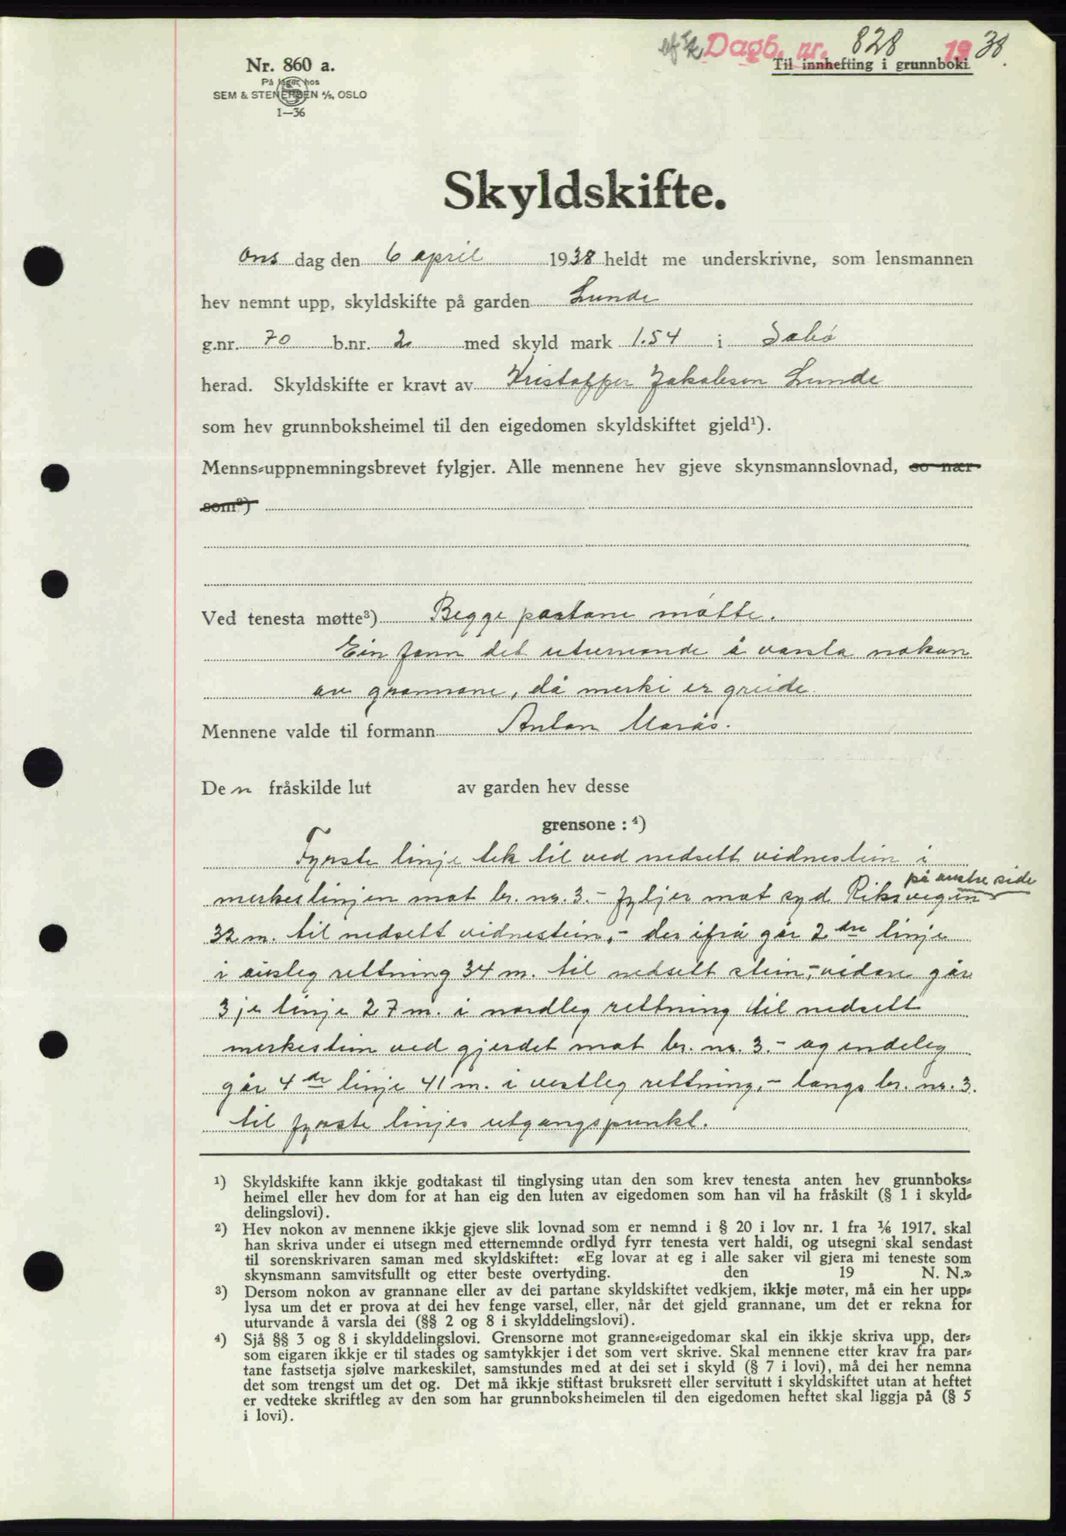 Dagb. nr. 828 1938.
Til innhefting i grunnboki
Nr. 860 a.
På lager hos
SEM & STENERSEN A/S, OSLO
1—36
Skyldskifte.
Ons dag den 6 april 1938 heldt me underskrivne, som lensmannen
hev nemnt upp, skyldskifte på garden Lunde
g.nr. 70 b.nr. 2 med skyld mark 1.54 i Sæbø
herad. Skyldskifte er kravt av Kristoffer Jakobson Lunde
som hev grunnboksheimel til den eigedomen skyldskiftet gjeld¹).
Menns-uppnemningsbrevet fylgjer. Alle mennene hev gjeve skynsmannslovnad, so nær
som²)
Ved tenesta møtte³) Begge partane møtte.
Ein fann det uturvande å varsla nokon
av grannane, då merki er greide.
Mennene valde til formann Anton Marås.
Den fråskilde lut av garden hev desse
grensone : ⁴)
Fyrste linje tek til ved nedsett vidnestein i
merkeslinjen mot br. nr. 3. - fyljer mot syd Riksvegen på austre side
32 m. til nedsett vidnestein, - der ifrå går 2dre linje
i austleg rettning 34 m. til nedsett stein, - vidare går
3je linje 27 m. i nordleg rettning til nedsett
merkestein ved gjerdet mot br. nr. 3. - og endeleg
går 4de linje 41 m. i vestleg rettning, - langs br. nr. 3.
til fyrste linjes utgangspunkt.
¹) Skyldskifte kann ikkje godtakast til tinglysing utan den som krev tenesta anten hev grunnboks-
heimel eller hev dom for at han eig den luten av eigedomen som han vil ha fråskilt (§ 1 i skyld-
delingslovi).
²) Hev nokon av mennene ikkje gjeve slik lovnad som er nemnd i § 20 i lov nr. 1 fra 1/6 1917, skal
han skriva under ei utsegn med etternemnde ordlyd fyrr tenesta vert haldi, og utsegni skal sendast
til sorenskrivaren saman med skyldskiftet: «Eg lovar at eg i alle saker vil gjera mi teneste som
skynsmann samvitsfullt og etter beste overtyding. den 19 N. N.»
³) Dersom nokon av grannane eller av dei partane skyldskiftet vedkjem, ikkje møter, må ein her upp-
lysa um det er prova at dei hev fenge varsel, eller, når det gjeld grannane, um det er rekna for
uturvande å varsla dei (§§ 2 og 8 i skylddelingslovi).
⁴) Sjå §§ 3 og 8 i skylddelingslovi. Grensorne mot granne-eigedomar skal ein ikkje skriva upp, der-
som eigaren ikkje er til stades og samtykkjer i det som vert skrive. Skal mennene etter krav fra par-
tane fastsetja sjølve markeskilet, samstundes med at dei set i skyld (§ 7 i lovi), må dei her nemna
det som trengst um det og. Det må ikkje stiftast bruksrett eller servitutt i skyldskiftet utan at heftet
er vedteke skriftleg av den som har grunnboksheimelen til den eigedomen heftet skal liggja på (§ 5
i lovi).